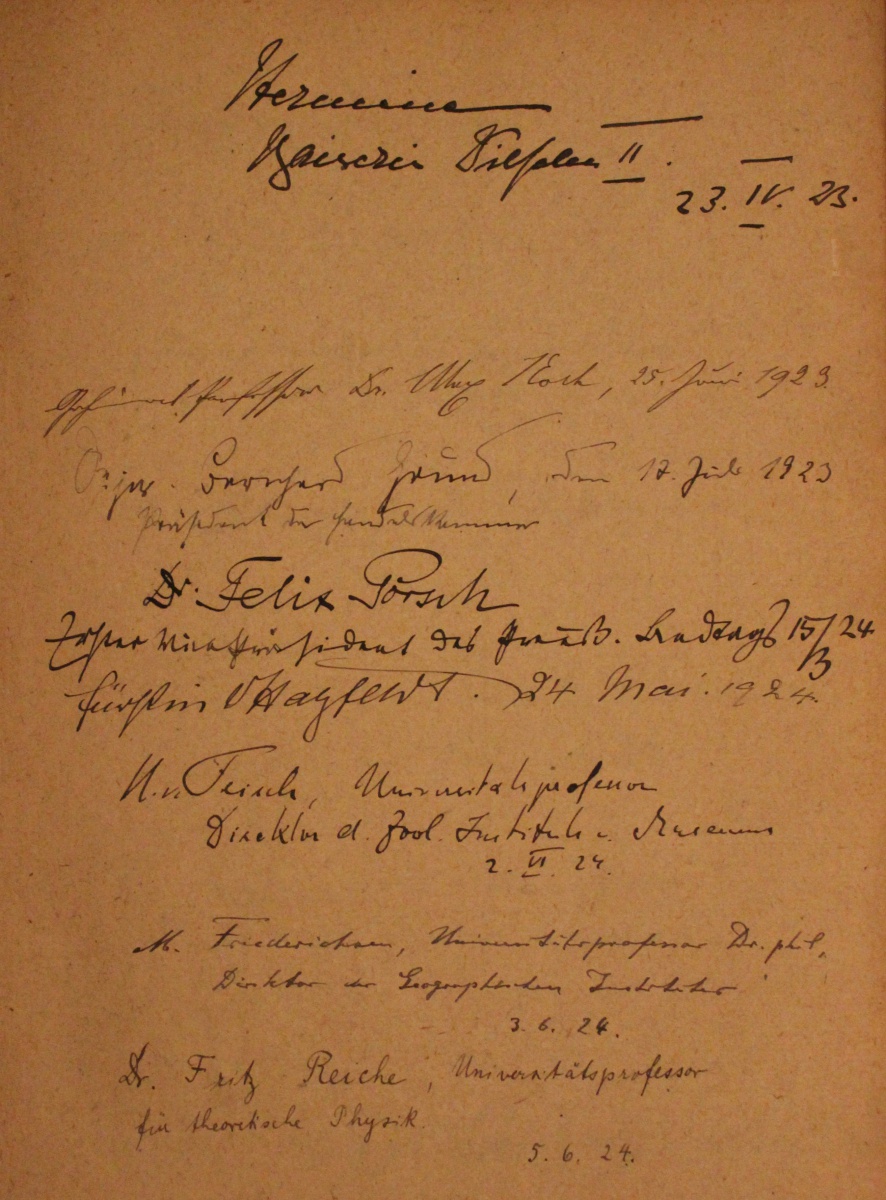 Hermine
Kaiserin Wilhelm II.
23. IV. 23.
Professor Dr. Max Koch, 25. Juni 1923
Bernhard Grund, den 17. Juli 1923
Präsident der Handelskammer
Dr. Felix Porsch
Erster Vicepräsident des Preuß. Landtags 15/3 24
Fürstin Hatzfeldt. 24 Mai. 1924.
Universitätsprofessor
Direktor d. Zool. Instituts u. Museums
2. VI. 24.
M. Friederichsen, Universitätsprofessor Dr. phil,
Direktor des Geographischen Institutes
3. 6. 24.
Dr. Fritz Reiche, Universitätsprofessor
für theoretische Physik.
5. 6. 24.